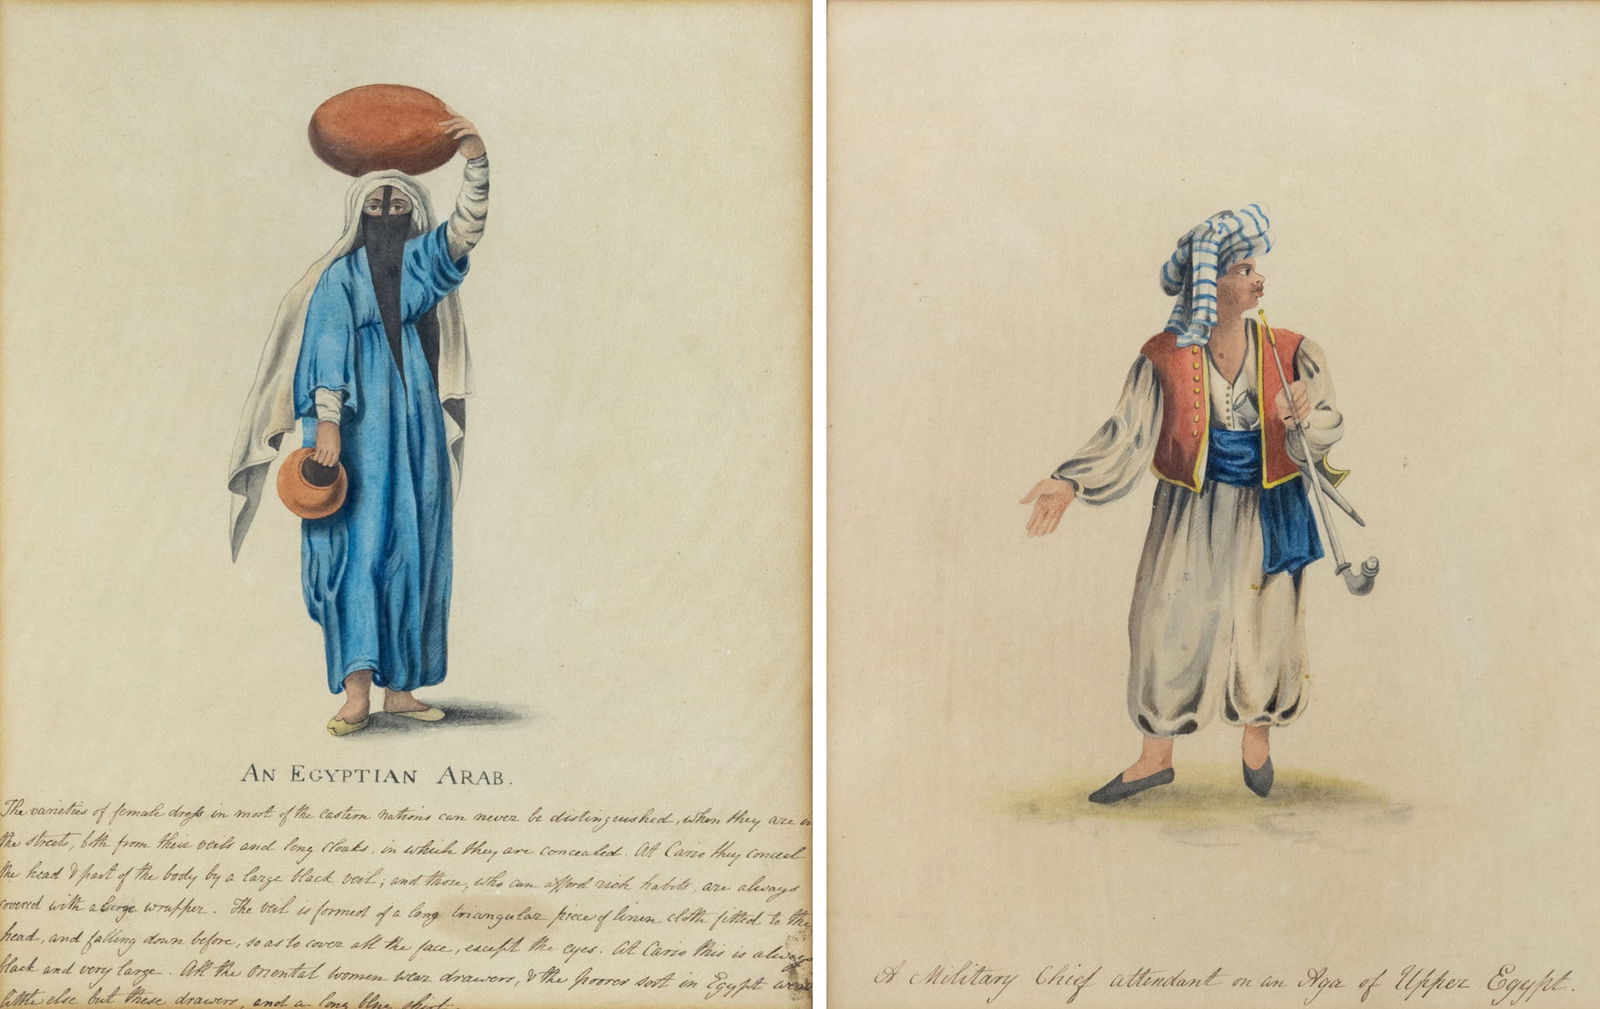 AN EGYPTIAN ARAB.
The varieties of female dress in most of the eastern nations can never be distinguished, when they are in
the streets, both from their veils and long cloaks, in which they are concealed. At Cario they conceal
the head & part of the body by a large black veil; and those, who can afford rich habits, are always
covered with a large wrapper. The veil is formed of a long triangular piece of linen cloth fitted to the
head, and falling down before, so as to cover all the face, except the eyes. At Cario this is always
black and very large. All the oriental women wear drawers, & the poorer sort in Egypt wear
little else but these drawers, and a long blue shirt.
A Military Chief attendant on an Aga of Upper Egypt.